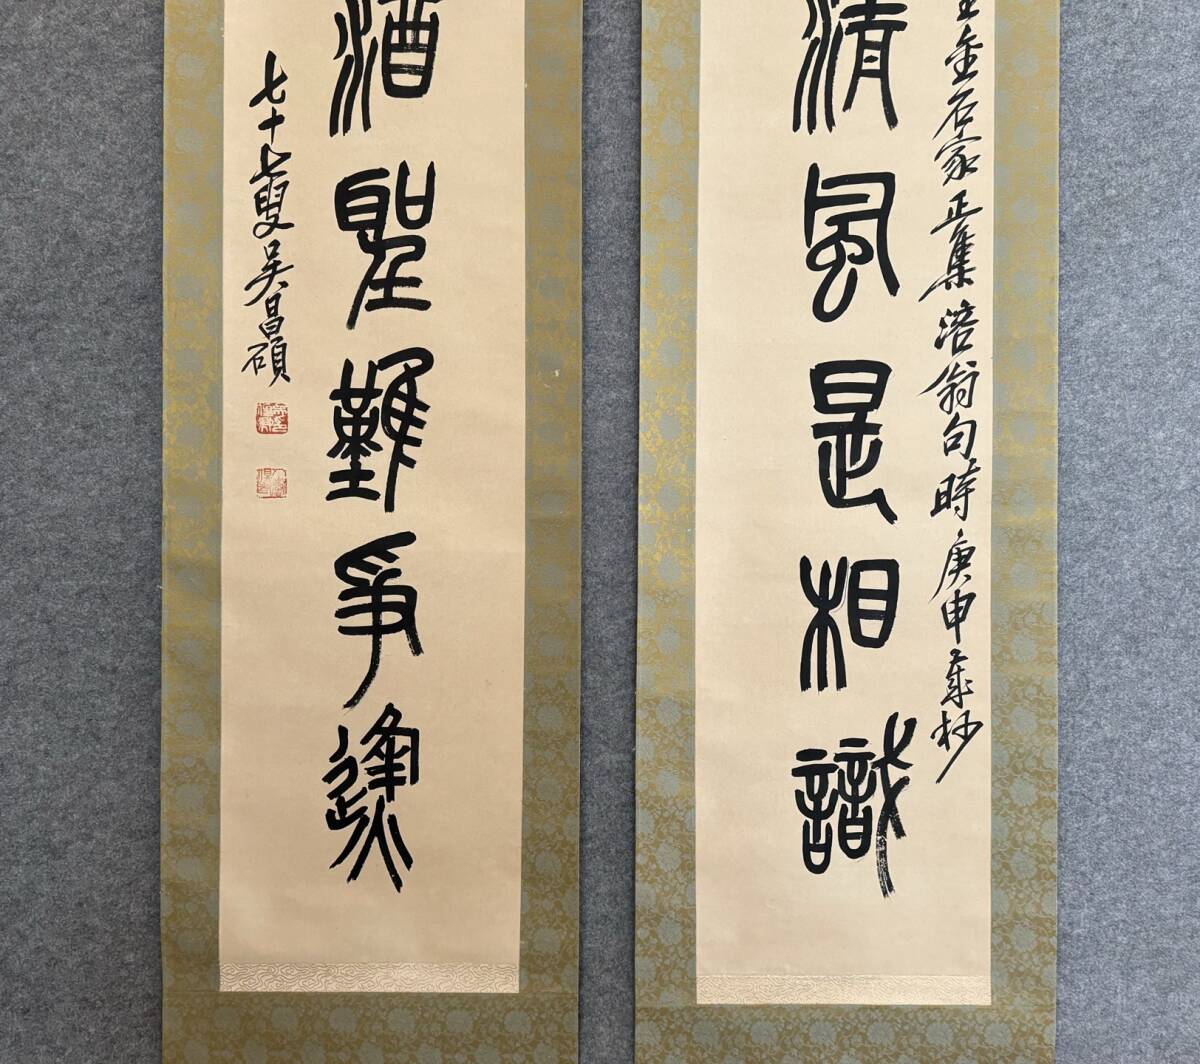 金石家正集涪翁句時庚申歲杪
清風是相識
酒聖難爭逢
七十七叟吳昌碩